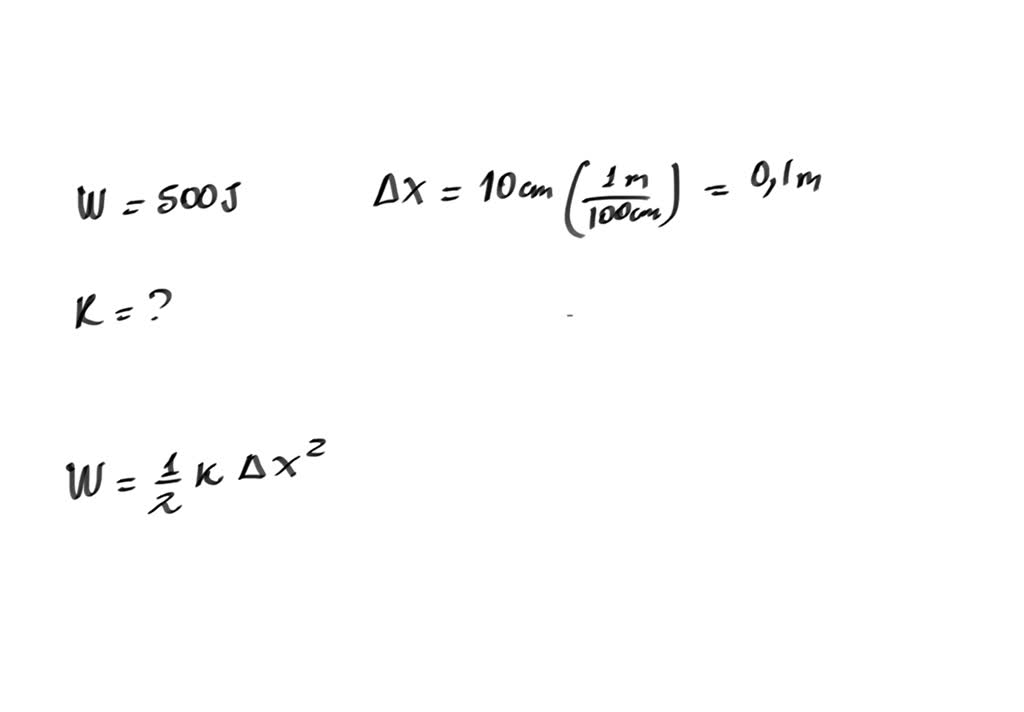 W = 500J    ΔX = 10cm (1m/100cm) = 0,1m
K = ?
W = 1/2 K ΔX²